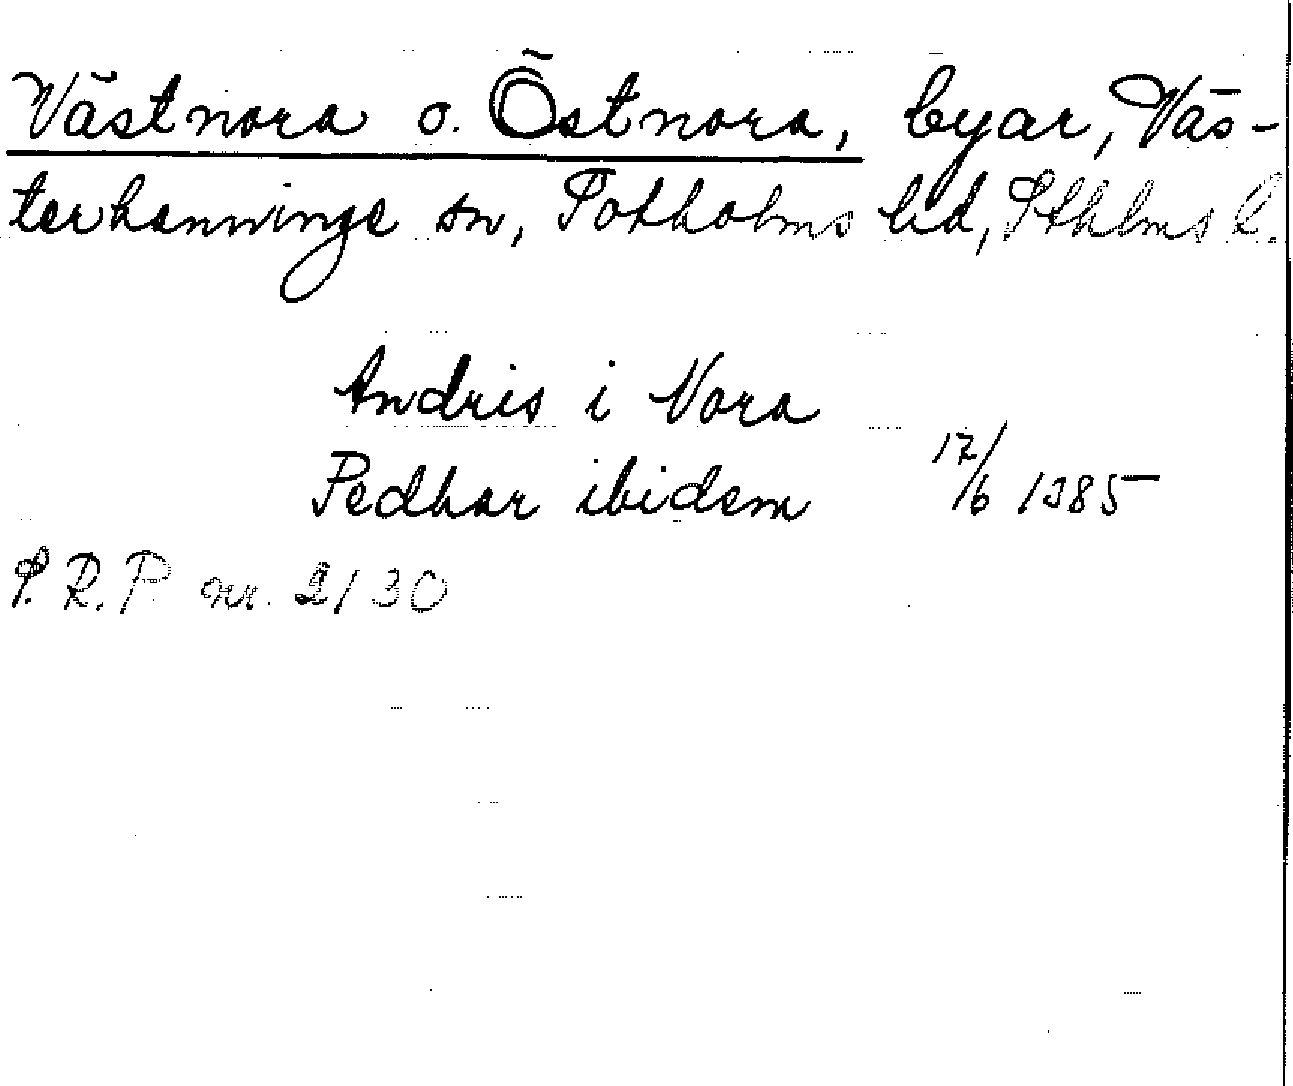 Västnora o. Östnora, byar, Väs-
terhanninge sn, Sotholms hd, Sthlms l.
Andris i Nora
Pedhar ibidem 17/6 1385
S.R.P. nr. 2130